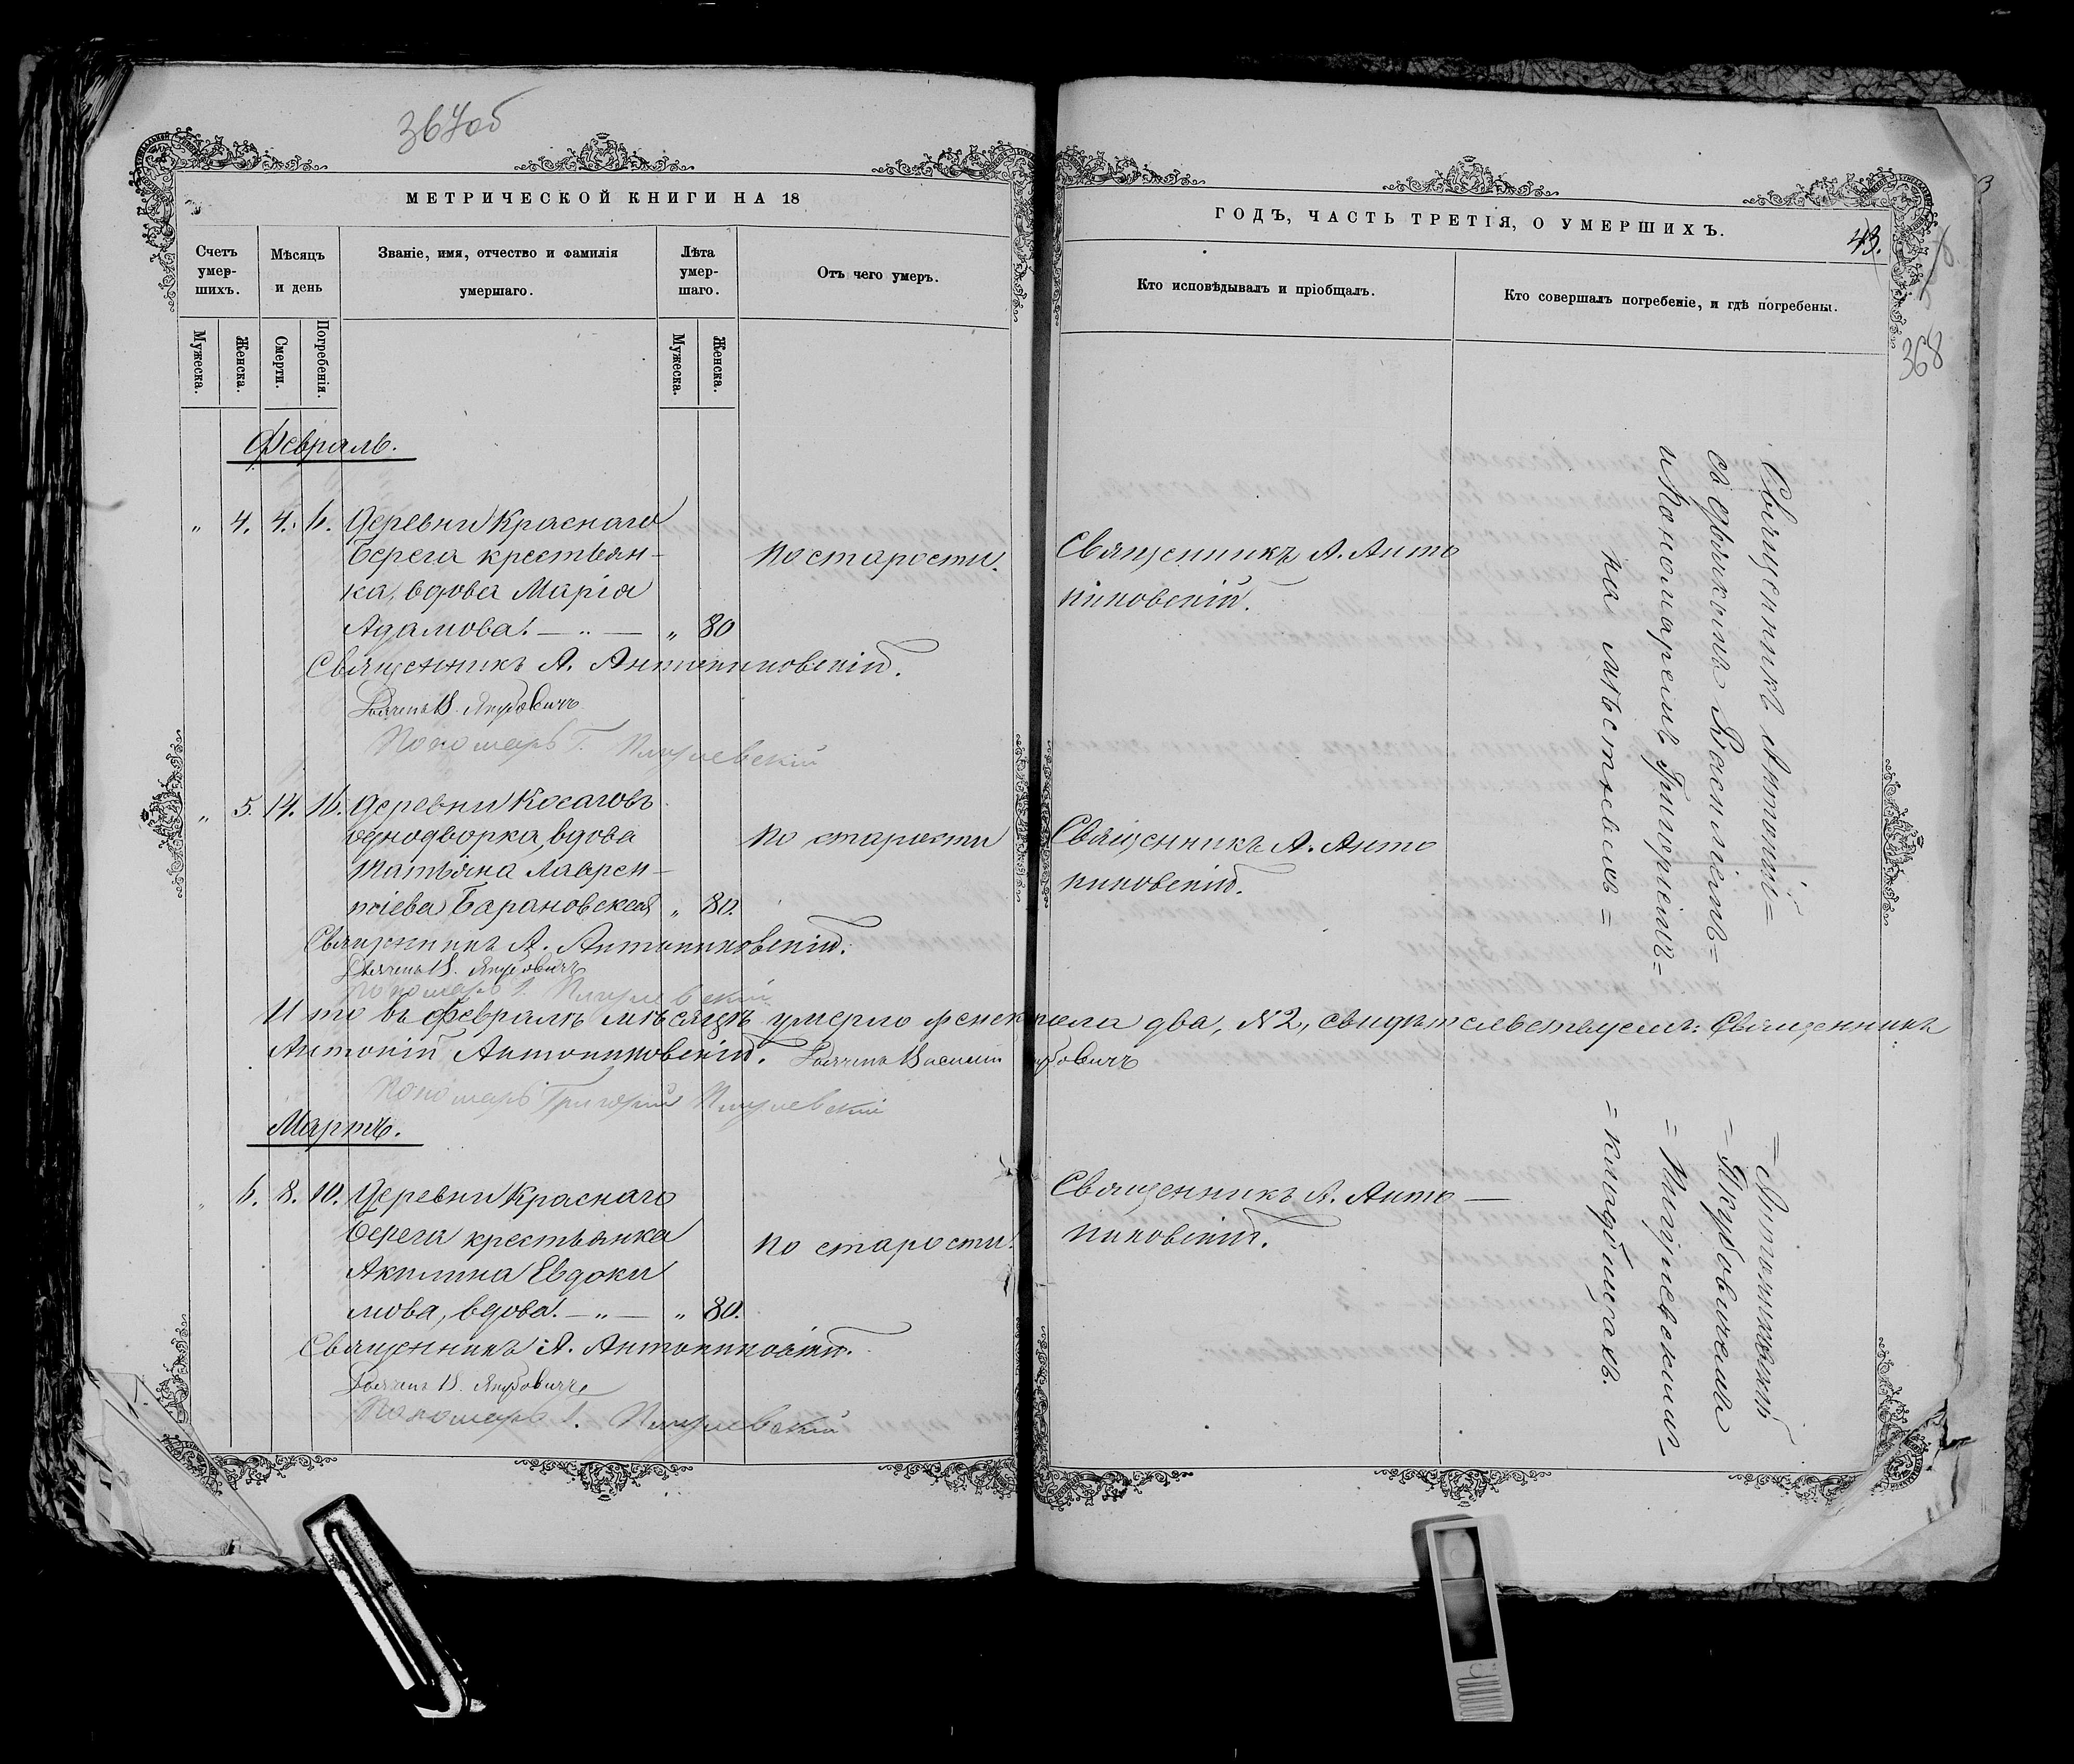 367об
МЕТРИЧЕСКОЙ КНИГИ НА 18
Счетъ умер-шихъ.
Мѣсяцъ и день
Званіе, имя, отчество и фамилія умершаго.
Лѣта умер-шаго.
Отъ чего умеръ.
Мужеска.
Женска.
Смерти.
Погребенія.
Мужеска.
Женска.
Февраль.
„ 4. 4. 6. Деревни Краснаго
Берега крестьян-
ка, вдова Марія
Адамова. — „ — „ 80
По старости.
Священникъ А. Антониновскій.
Дьячекъ В. Якубовичъ
Пономарь Г.
„ 5. 14. 16. Деревни Косаговъ
однодворка, вдова
Татьяна Лаврен-
тіева Барановская „ 80.
По старости
Священникъ А. Антониновскій.
Дьячекъ В. Якубовичъ
Пономарь Г.
Итого въ Февралѣ мѣсяцѣ умерло женск пола два, №2, свидѣтельствуемъ: Священникъ
Антоній Антониновскій. Дьячекъ Василій Якубовичъ
Пономарь Григорій
Мартъ.
„ 6. 8. 10. Деревни Краснаго
Берега крестьянка
Акилина Евдоки
мова, вдова. — „ — „ 80.
По старости.
Священникъ А. Антониновскій.
Дьячекъ В. Якубовичъ
Пономарь Г.
ГОДЪ, ЧАСТЬ ТРЕТІЯ, О УМЕРШИХЪ.
43.
368
Кто исповѣдывалъ и пріобщалъ.
Кто совершалъ погребеніе, и гдѣ погребены.
Священникъ А. Анто
ниновскій.
Священникъ А. Анто
ниновскій.
Священникъ А. Анто —
ниновскій.
Священникъ Антоній = = Антониновскій
съ Дьячкомъ Василіемъ = = Якубовичемъ
и Пономаремъ Григоріемъ =
на мѣстномъ = = кладбищахъ.